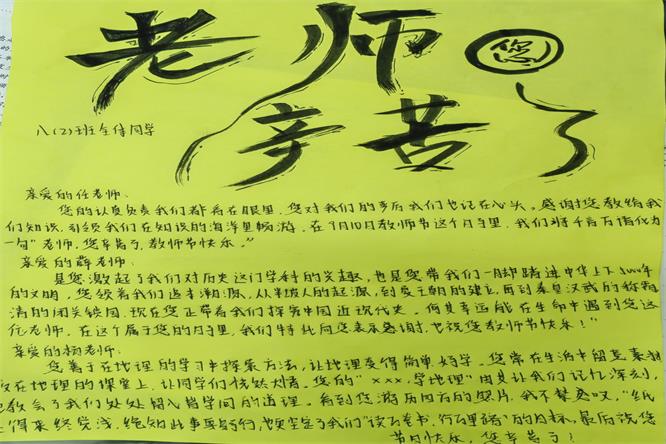 老师您
辛苦了
八(2)班全体同学
亲爱的任老师:
您的认真负责我们都看在眼里,您对我们的季后我们也记在心头。感谢您教给我
们知识,引领我们在知识的海洋里畅游。在9月10日教师节这个日子里,我们将千言万语化为
一句"老师,您辛苦了,教师节快乐。"
亲爱的薛老师:
是您激起了我们对历史这门学科的兴趣,也是您带我们一脚踏进中华上下5000年
的文明,您领着我们追本溯源,从半坡人的起源,到夏王朝的建立,再到秦皇汉武的称霸
清的闭关锁国。现在您正带着我们探索中国近现代史。何其幸运能在生命中遇到您这
位老师,在这个属于您的日子里,我们特此向您表示感谢,也祝您教师节快乐!"
亲爱的杨老师:
您善于在地理的学习中探索方法,让地理变得简单好学。您常在生活中留意素材
在地理的课堂上,让同学们恍然大悟。您的"×××,学地理"由其让我们记忆深刻,
教会了我们处处留心皆学问的道理。看到您游历四方的照片,我不禁感叹,"纸
上得来终觉浅,绝知此事要躬行"您坚定了我们"读万卷书,行万里路"的目标。最后祝您
节日快乐,您辛苦了